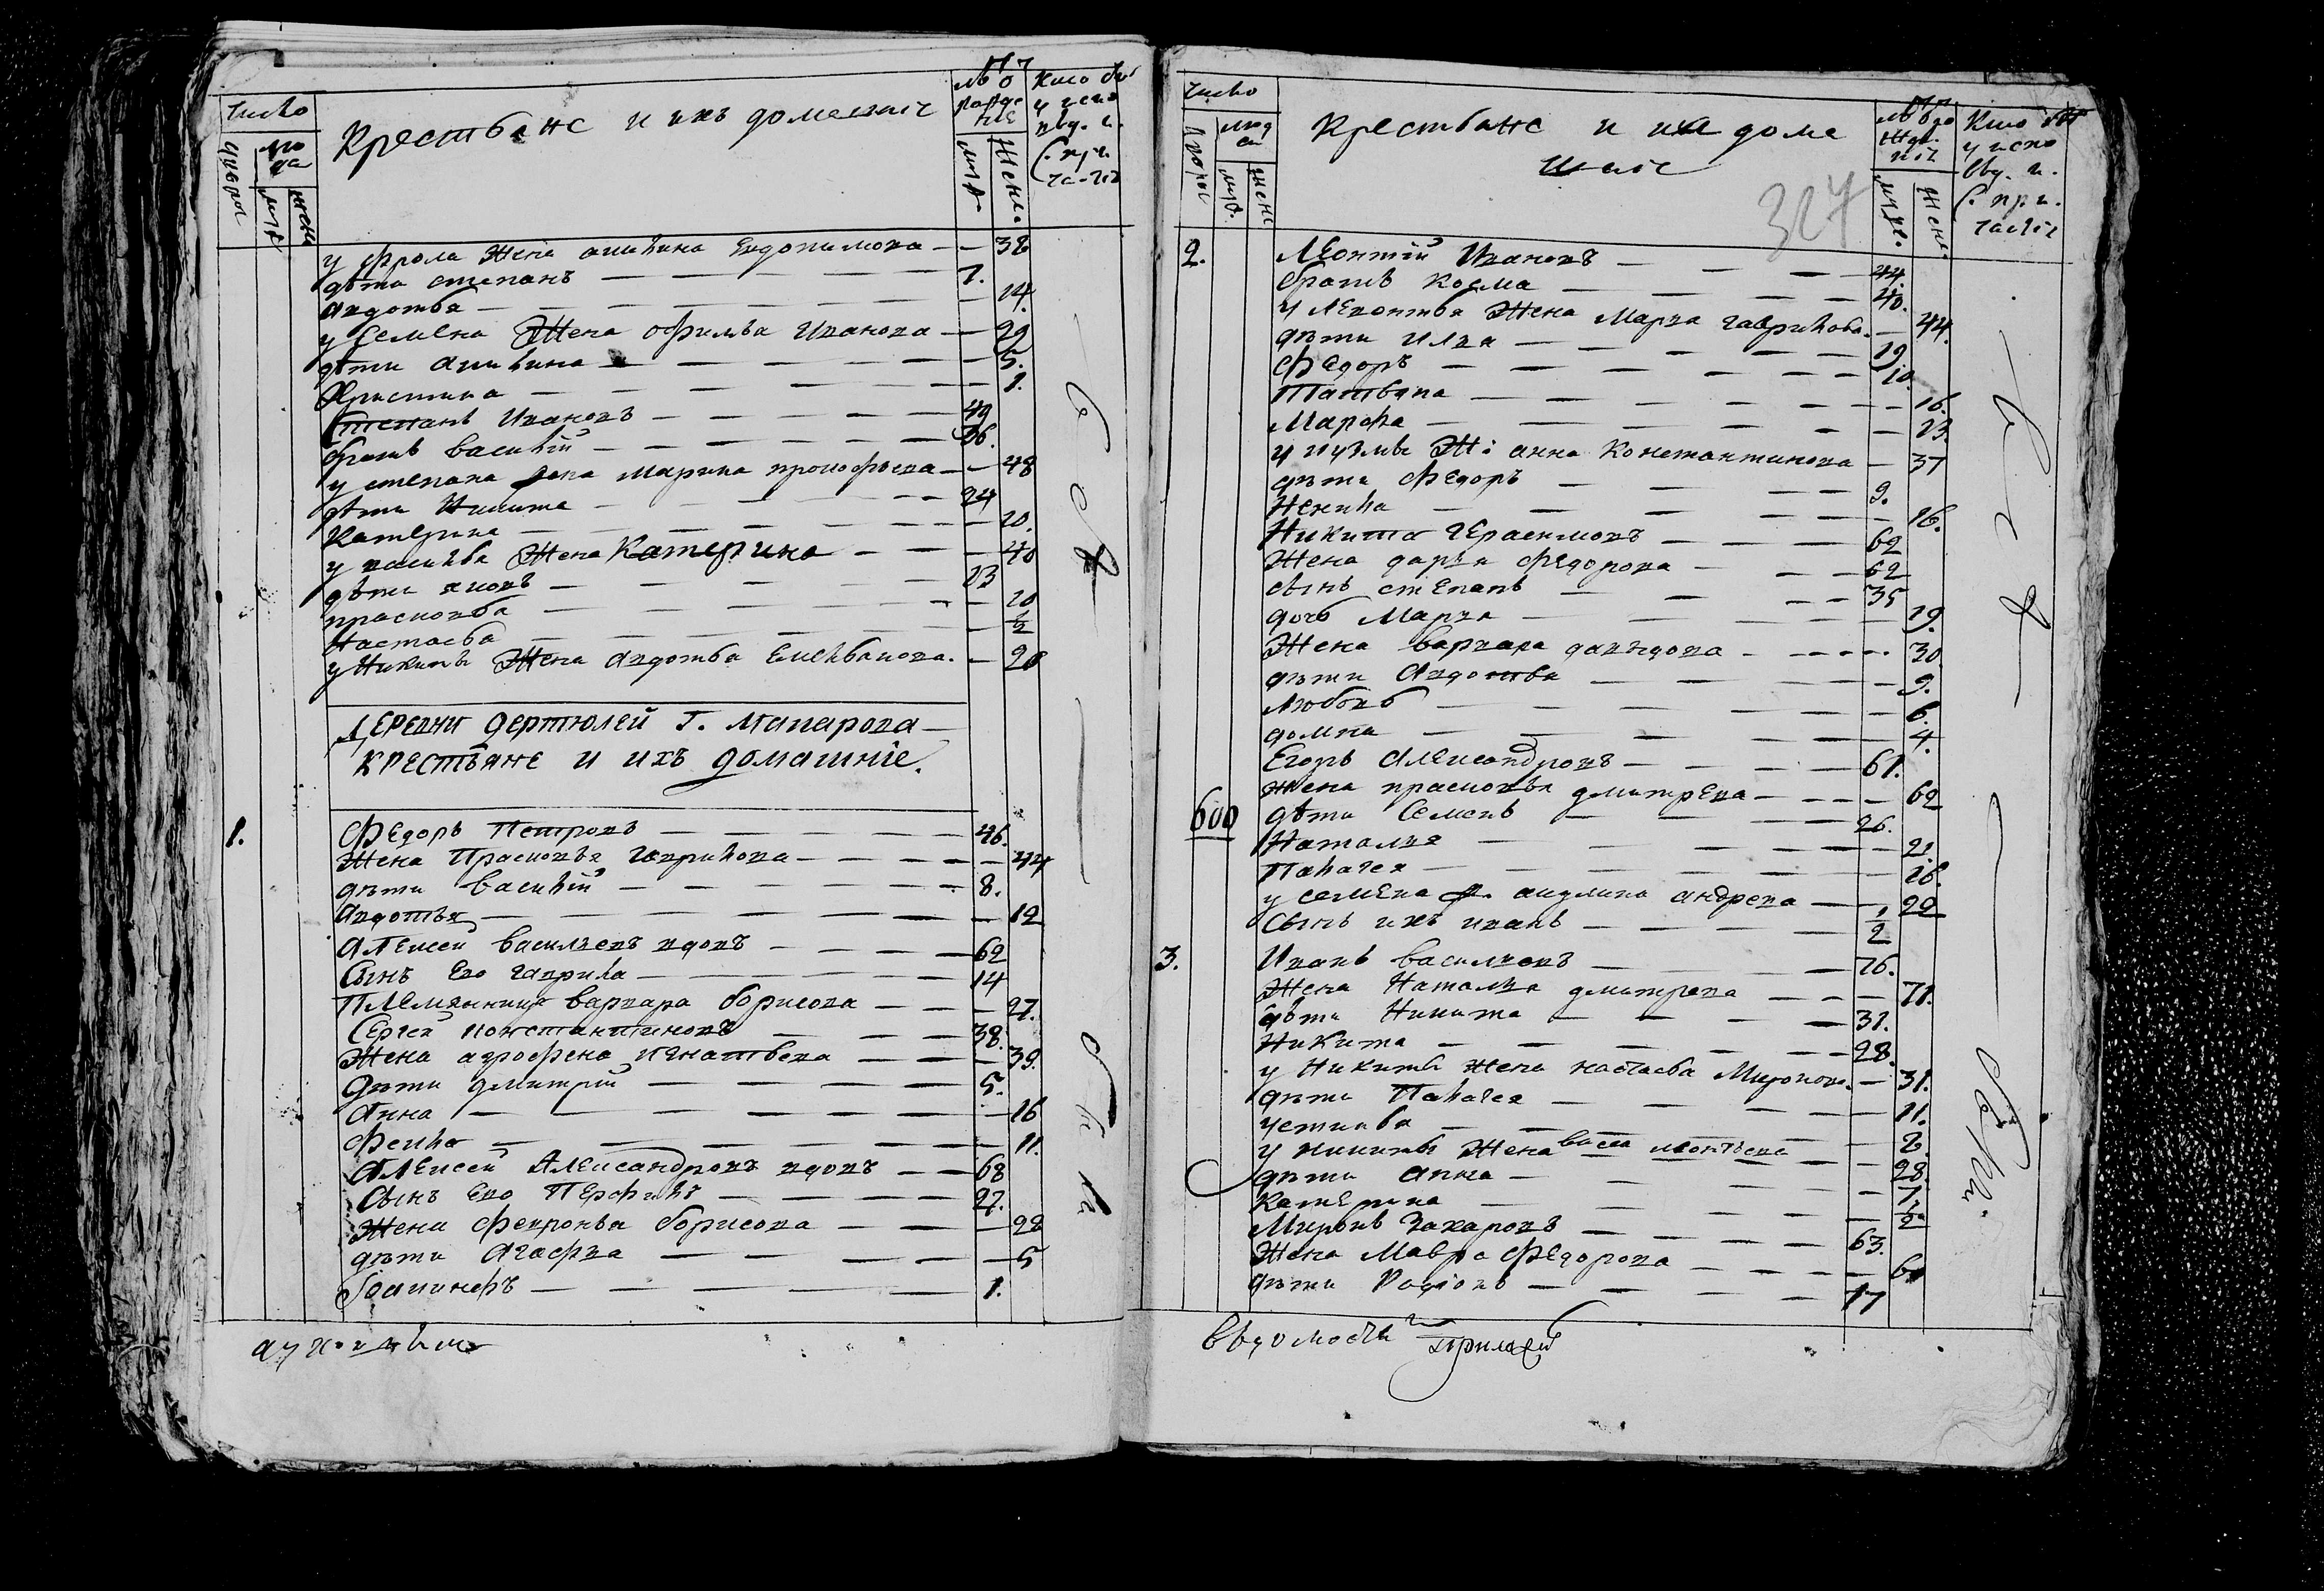 число
люди
дворы
муж
жен
Крестьяне и ихъ домашніе
лѣто рождения
муж.
жен.
Кто былъ у испо вѣд. и с. при час.
у Фрола Жена акилина Евдокимова — — 38
дѣти степанъ — — — 7.
Авдотья — — — 14.
у Семена Жена офимья Иванова — 29
дѣти акилина — — — 5.
Христина — — — 1.
Степанъ Ивановъ — — — 49
братъ василій — — — 46.
у степана жена Марина прокофьева — 48
дѣти Никита — — — 24
Катерина — — — 20.
у василья Жена Катерина — — — 40
дѣти яковъ — — — 23
прасковья — — — 20
Настасья — — — 1/2
у Никиты Жена Авдотья Емельянова. — 20
ДЕРЕВНИ Дертюлей Г. Мапарова
КРЕСТЬЯНЕ И ИХЪ домашніе.
1. Федоръ Петровъ — — — 46.
Жена Прасковья Гаврилова — — — 44
дѣти василій — — — 8.
Авдотья — — — 12
Алексей васильевъ вдовъ — — — 62
Сынъ Его гаврила — — — 14
Племянница варвара борисова — — 27.
Сергей константиновъ — — — 38.
Жена агрофена игнатьева — — — 39.
Дѣти дмитрій — — — 5.
Анна — — — 16
Фекла — — — 11.
Алексей Александровъ вдовъ — — 68
Сынъ Ево Перфилъ — — — 27.
Жена Февронья борисова — — — 28
дѣти Агафья — — — 5
— — — 1.
духовныя
число
дворы
люди
муж.
жен
Крестьяне и их дома
шніе
327
лѣто рожденія
муж.
жен.
Кто былъ у испо вѣд. и с. при. частія
2. Леонтій Ивановъ — — — 44.
братъ Козма — — — 40.
у Леонтья Жена Марья гаврилова. — 44.
дѣти Илья — — — 19.
Федоръ — — — 10.
Татьяна — — — 16.
Марфа — — — 13.
у кузмы Ж: анна Константинова — 37
дѣти Федоръ — — — 9.
Ненила — — — 16.
Никита Герасимовъ — — — 62
Жена дарья Федорова — — — 62
сынъ стЕпанъ — — — 35
дочь Марья — — — 19.
Жена варвара давыдова — — — 30
дѣти Авдотья — — — 9.
Любовь — — — 6.
домна — — — 4.
Егоръ Александровъ — — — 61.
Жена прасковья дмитрева — — — 62
600 дѣти Семенъ — — — 26.
Наталья — — — 21.
Палагея — — — 18.
у семена ж. акулина андрева — — 22
Сынъ ихъ иванъ — — — 1/2
3. Иванъ васильевъ — — — 76.
Жена Наталья дмитрева — — — 71.
дѣти Никита — — — 31.
Никита — — — 28.
у Никиты жена настасья Миронова. — 31.
дѣти Палагея — — — 11.
устинья — — — 2.
у никиты Жена васса леонтьева — — 28.
дѣти Анна — — — 7.
Катерина — — — 1/2.
Миронъ Захаровъ — — — 63.
Жена Мавра Федорова — — — 61
дѣти Родіонъ — — — 17
вѣдомости